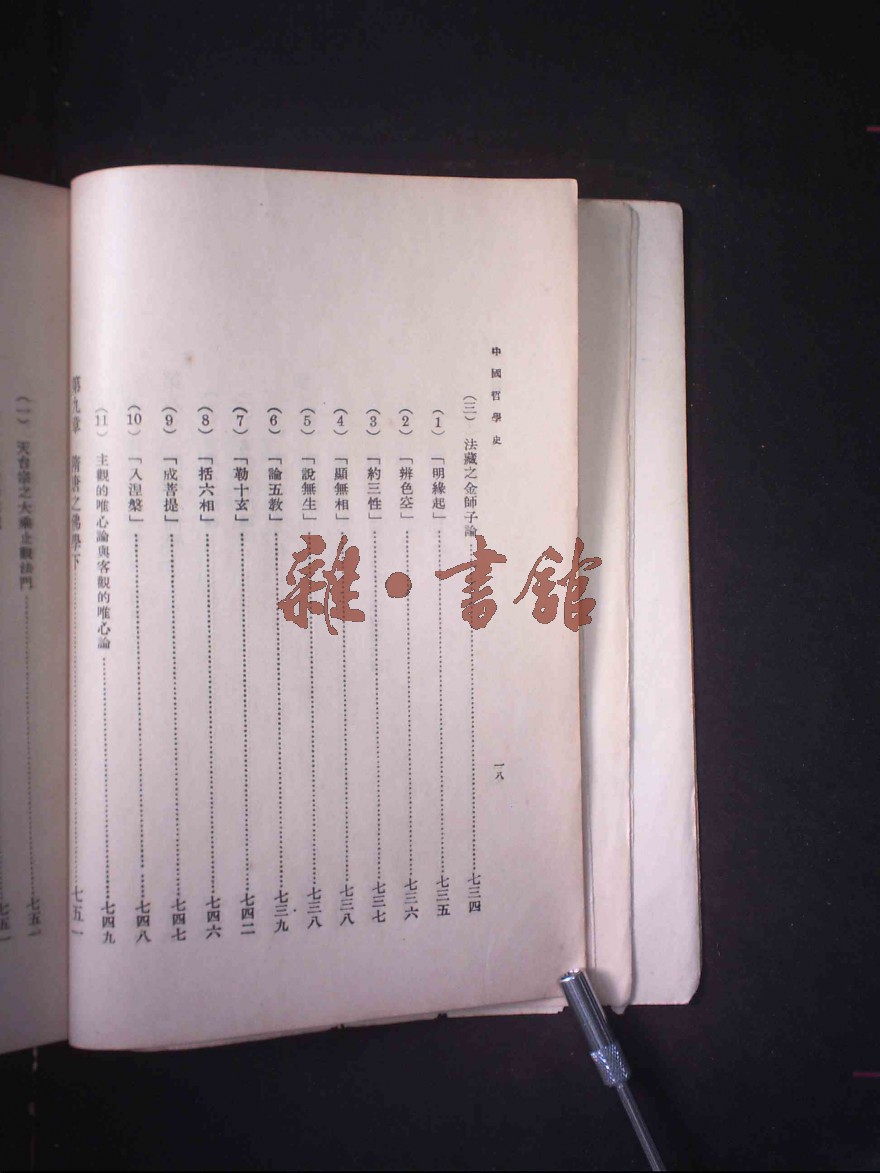 中國哲學史
一八
(三) 法藏之金師子論……七三四
(1) 「明緣起」……七三五
(2) 「辨色空」……七三六
(3) 「約三性」……七三七
(4) 「顯無相」……七三八
(5) 「說無生」……七三八
(6) 「論五教」……七三九
(7) 「勒十玄」……七四二
(8) 「括六相」……七四六
(9) 「成菩提」……七四七
(10) 「入涅槃」……七四八
(11) 主觀的唯心論與客觀的唯心論……七四九
第九章 隋唐之佛學下……七五一
(一) 天台宗之大乘止觀法門……七五一
七五一
雜·書館